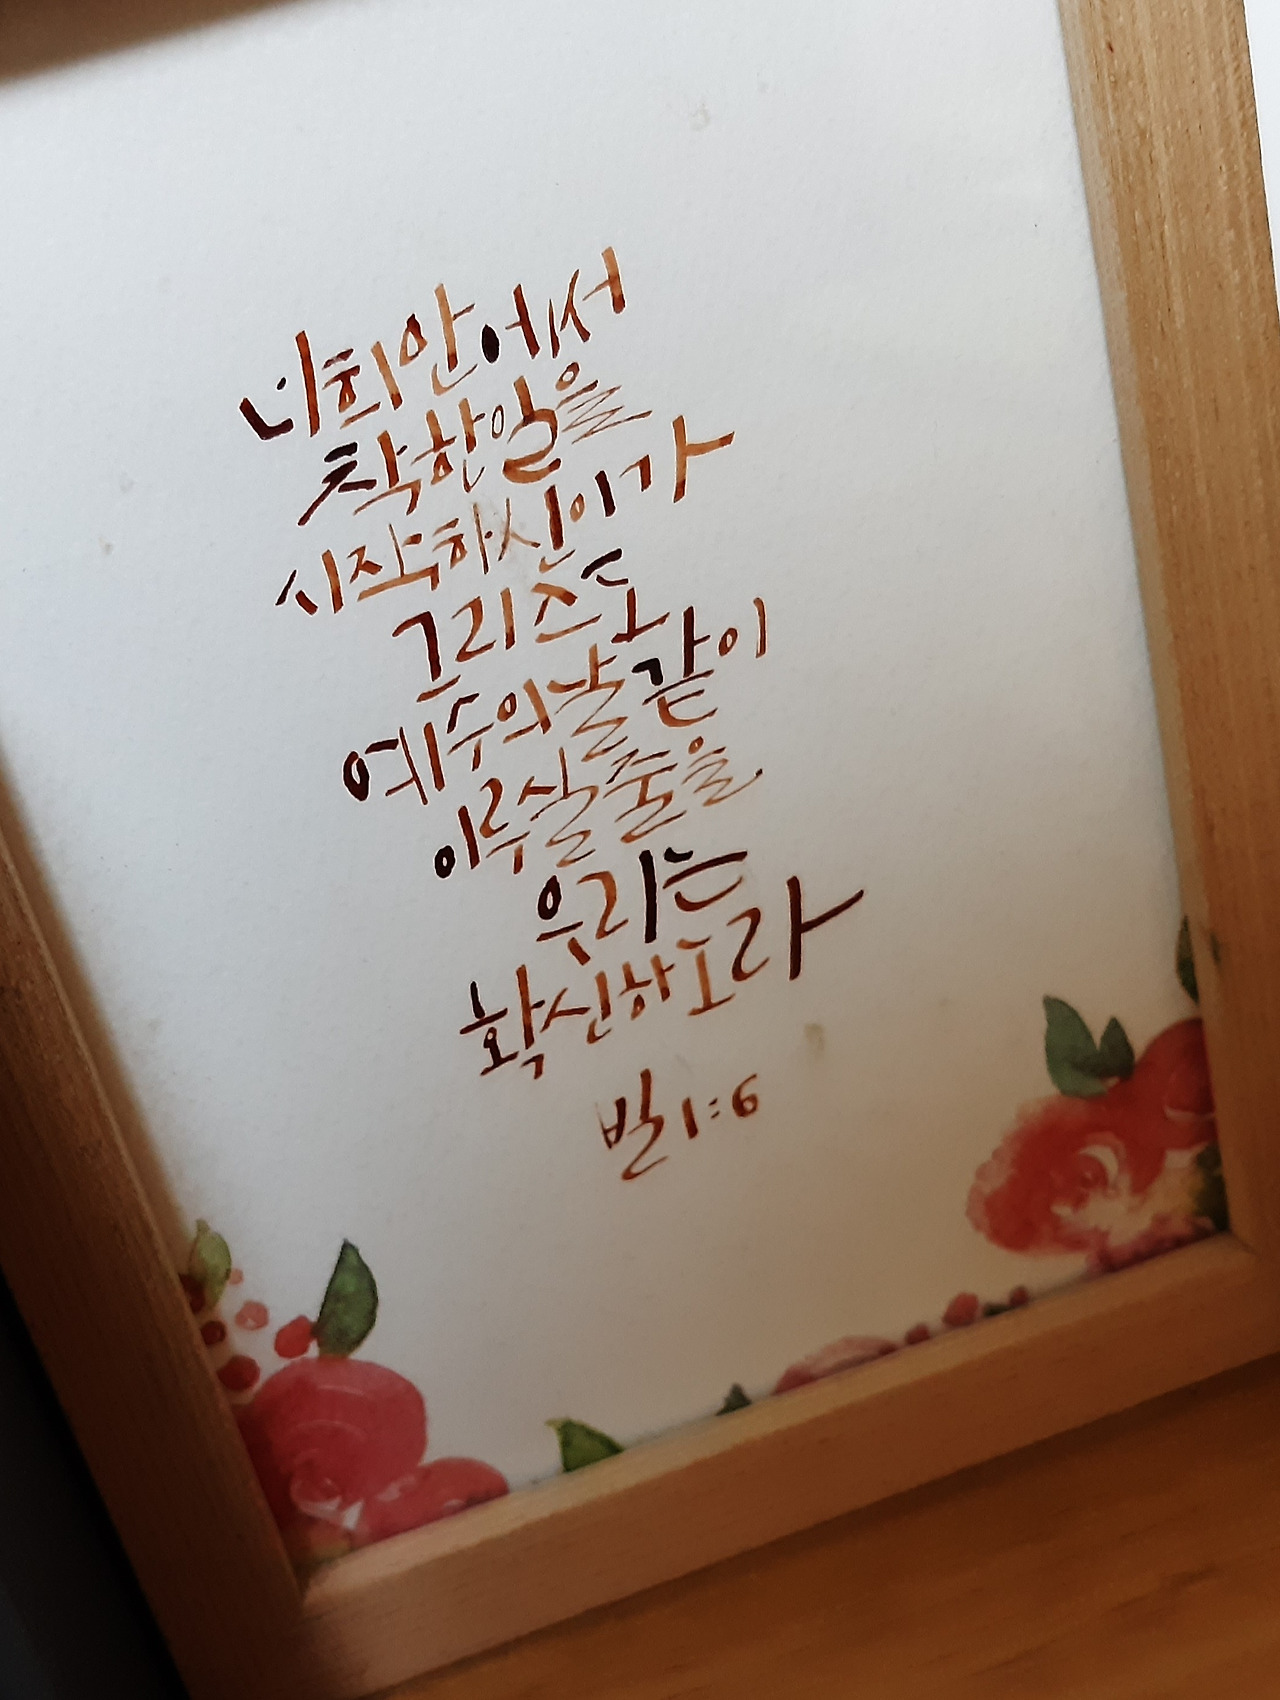 너희 안에서
착한 일을
시작하신 이가
그리스도
예수의 날 같이
이루실 줄을
우리는
확신하노라
빌 1:6